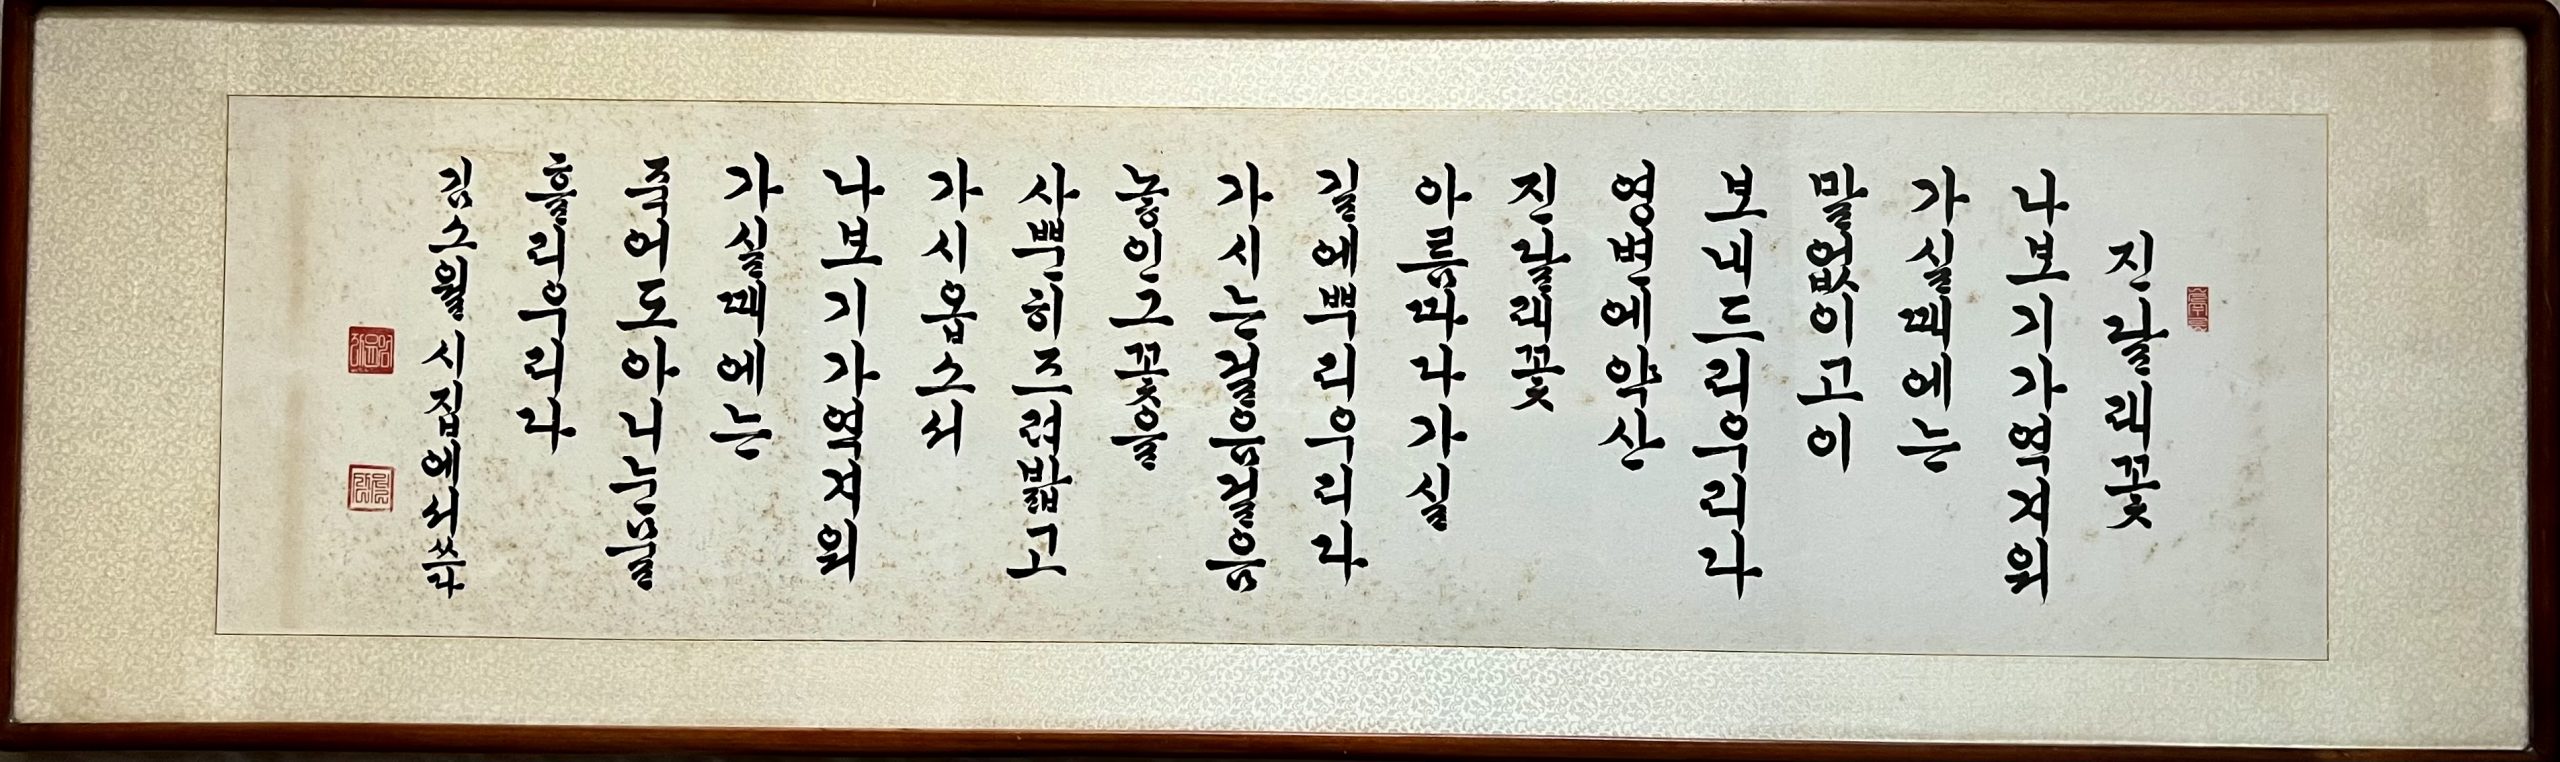 진달래꽃
나보기가역겨워
가실때에는
말없이고이
보내드리우리다
영변에약산
진달래꽃
아름따다가실
길에뿌리우리다
가시는걸음걸음
놓인그꽃을
사뿐히즈려밟고
가시옵소서
나보기가역겨워
가실때에는
죽어도아니눈물
흘리우리다
김소월 시집에서쓰다